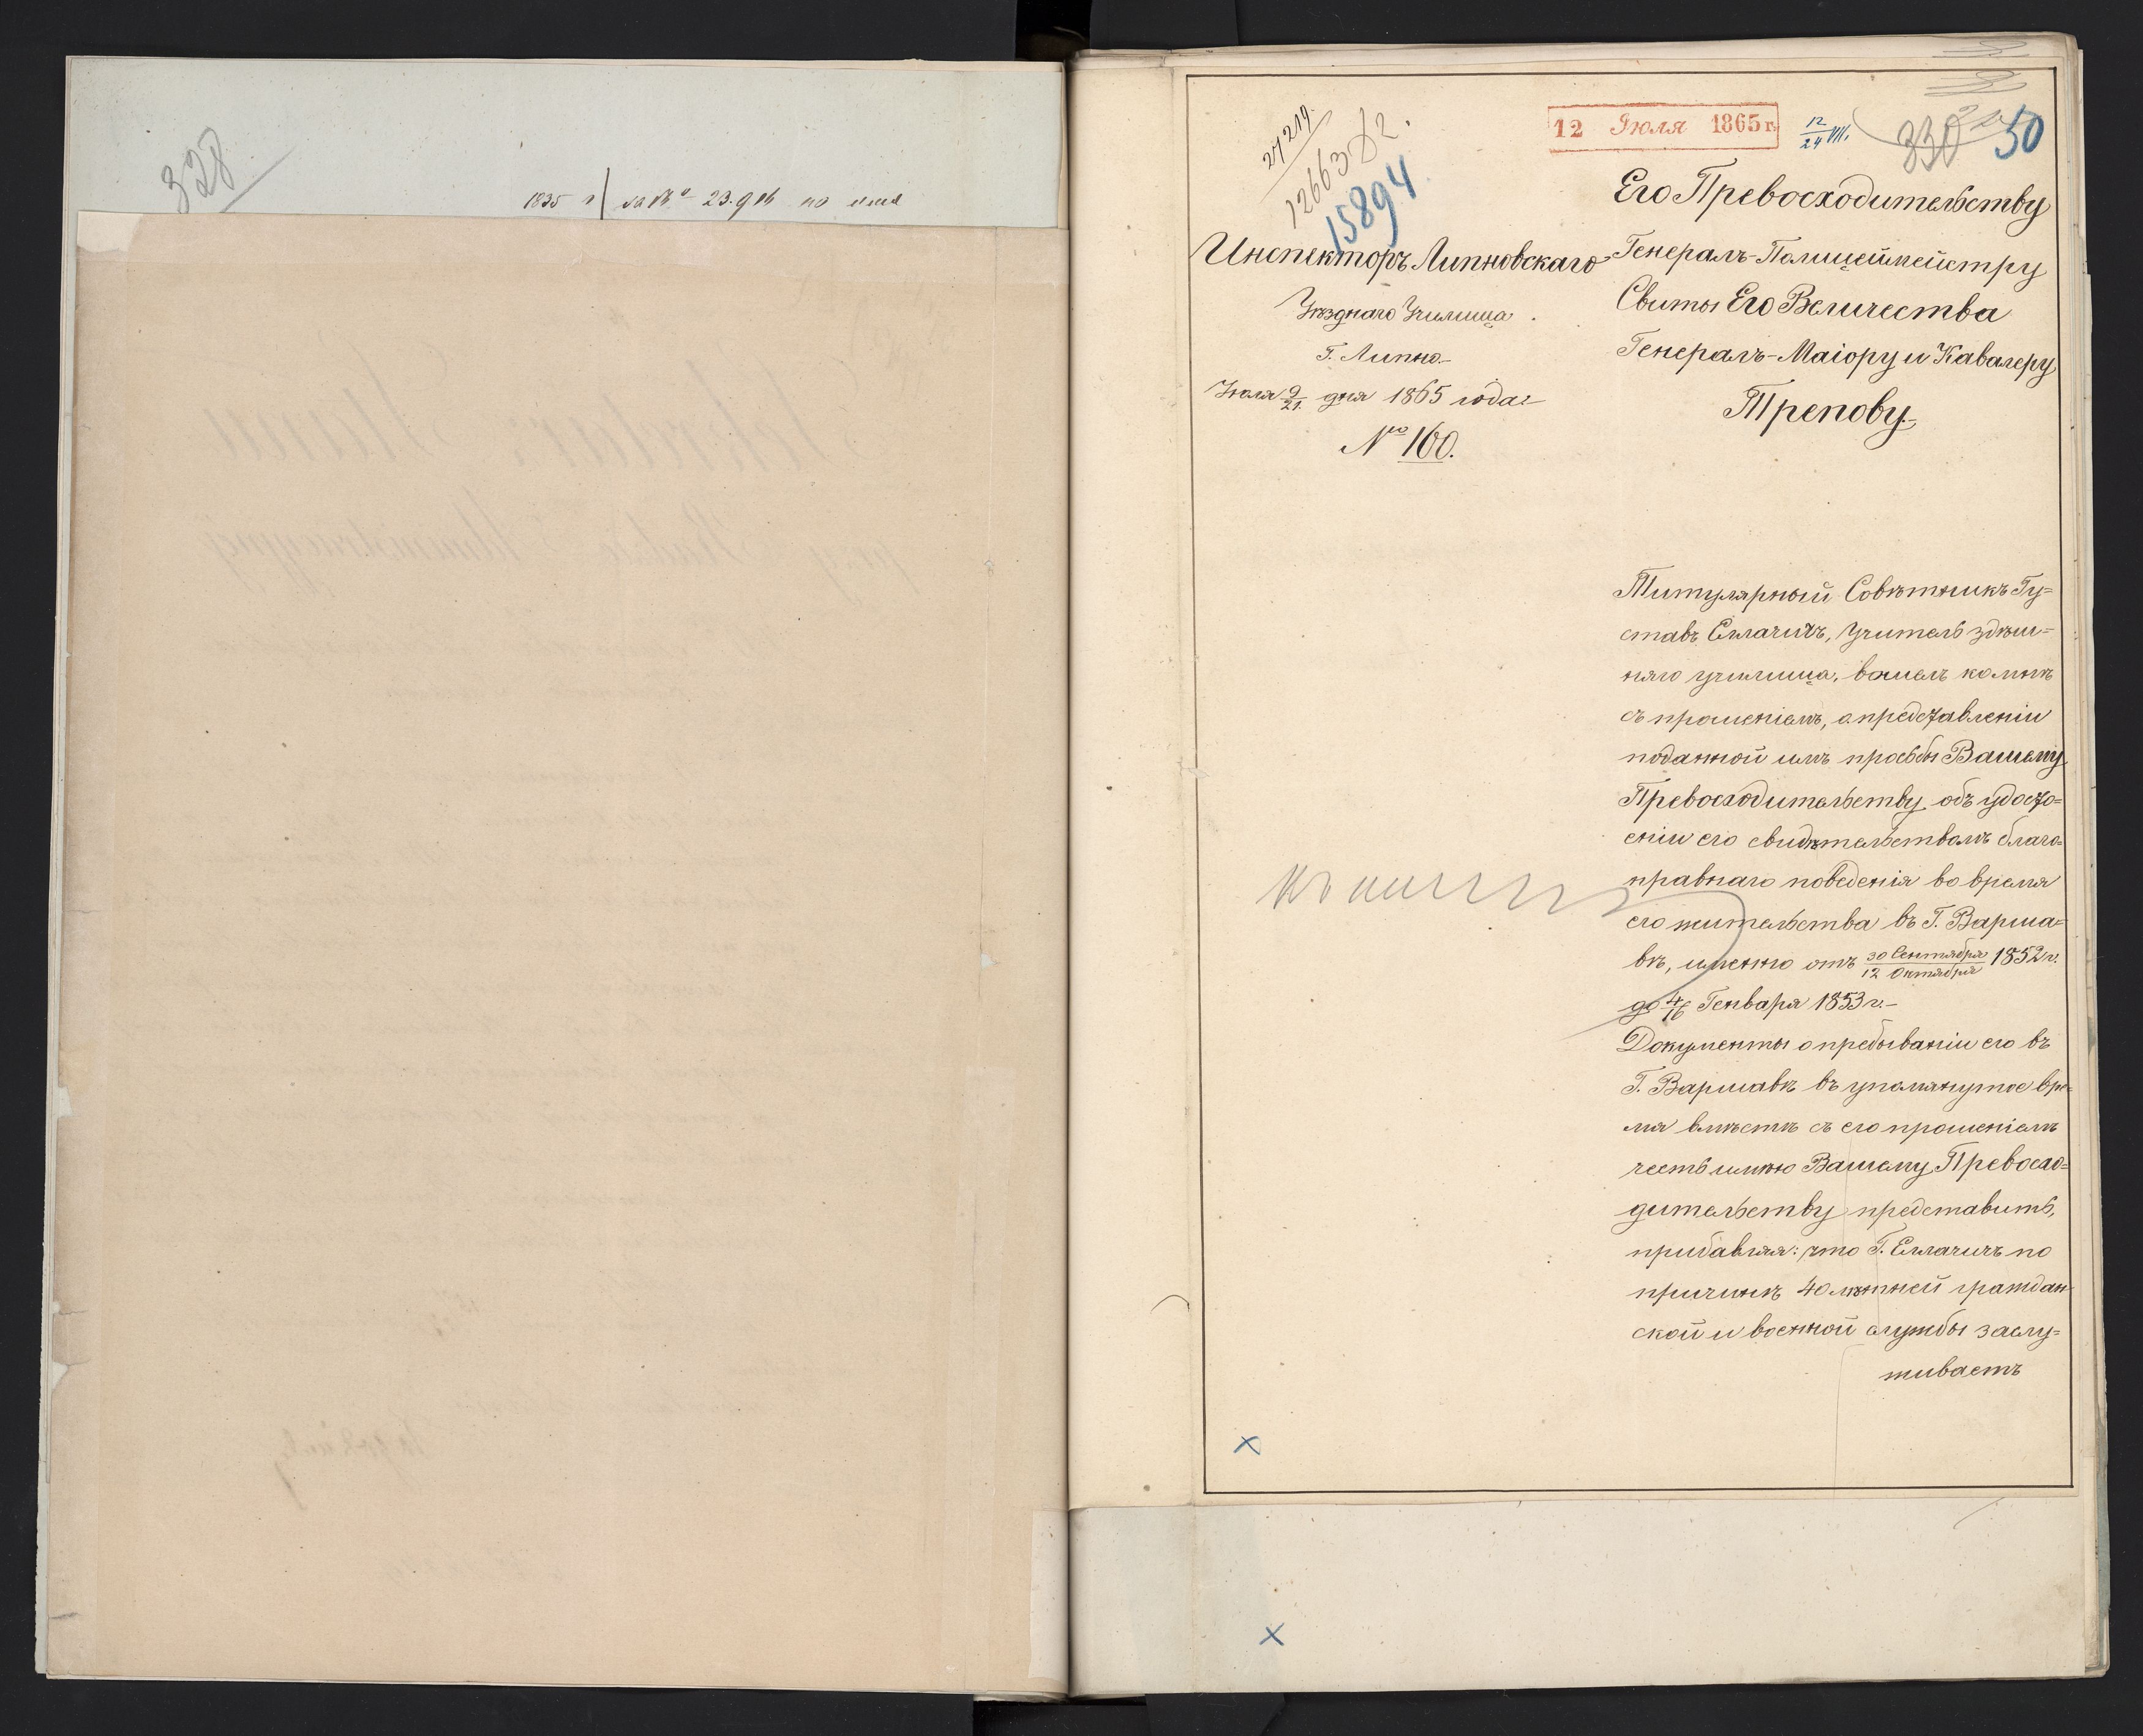 328
27219.
12663
15894
12 Июля 1865 г.
12/24 VII.
330
50
Инспекторъ Липновскаго
Уѣзднаго Училища
Г. Липно.
Іюля 9/21 дня 1865 года
№ 160.
Его Превосходительству
Генералъ-Полицеймейстру
Свиты Его Величества
Генералъ-Маіору и Кавалеру
Трепову.
Титулярный Совѣтникъ Гу=
ставъ Еллачичъ, Учитель здѣш=
няго училища, вошелъ ко мнѣ
съ прошеніемъ, о представленіи
поданной имъ просьбы Вашему
Превосходительству объ удосто=
еніи его свидѣтельствомъ благо=
нравнаго поведенія во время
его жительства въ Г. Варша=
вѣ, именно отъ 30 Сентября/12 Октября 1852 г.
до 4/16 Генваря 1853 г.
Документы о пребываніи его въ
Г. Варшавѣ въ упомянутое вре=
мя вмѣстѣ съ его прошеніемъ
честь имѣю Вашему Превосхо=
дительству представить,
прибавляя: что Г. Еллачичъ по
причинѣ 40 лѣтней граждан
ской и военной службы заслу=
живаетъ